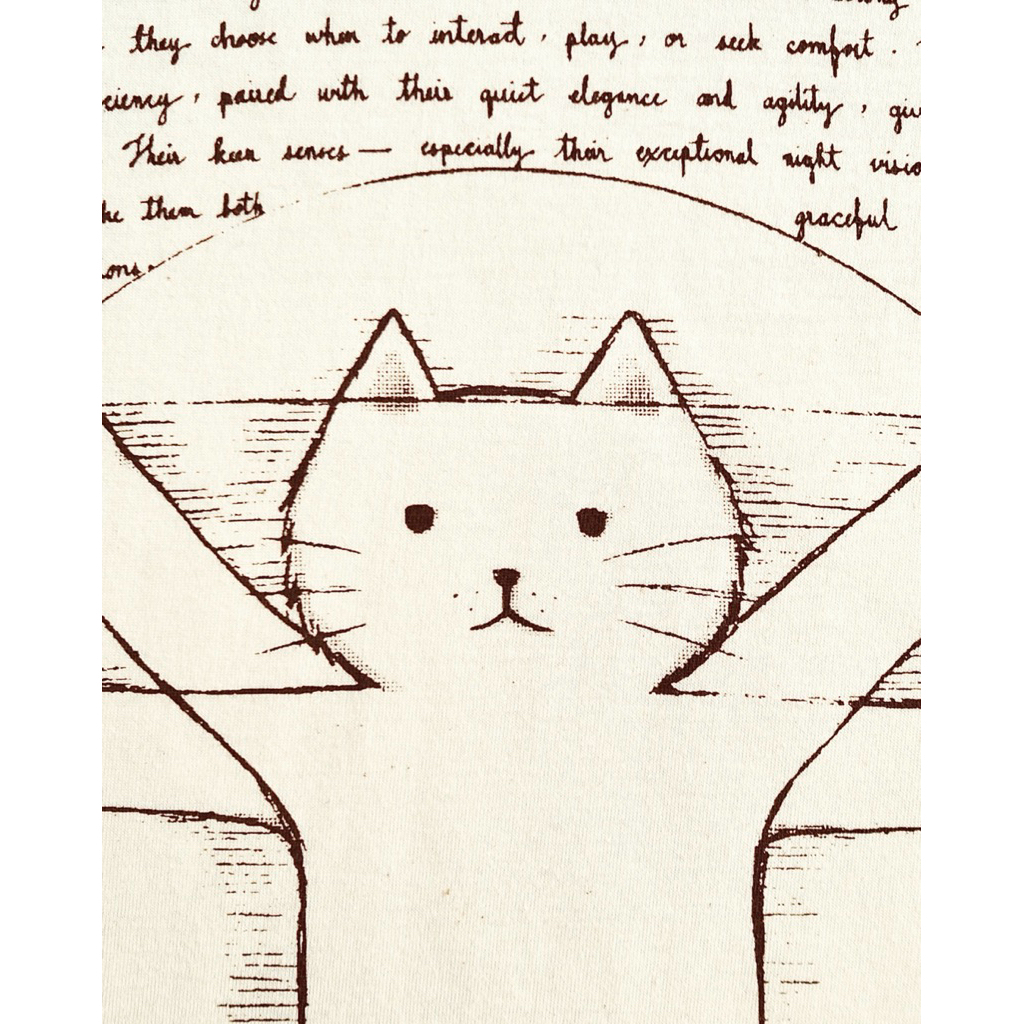 they choose when to interact, play, or seek comfort.
ciency, paired with their quiet elegance and agility, giv
Their keen senses — especially their exceptional night visio
ke them both graceful
ons.